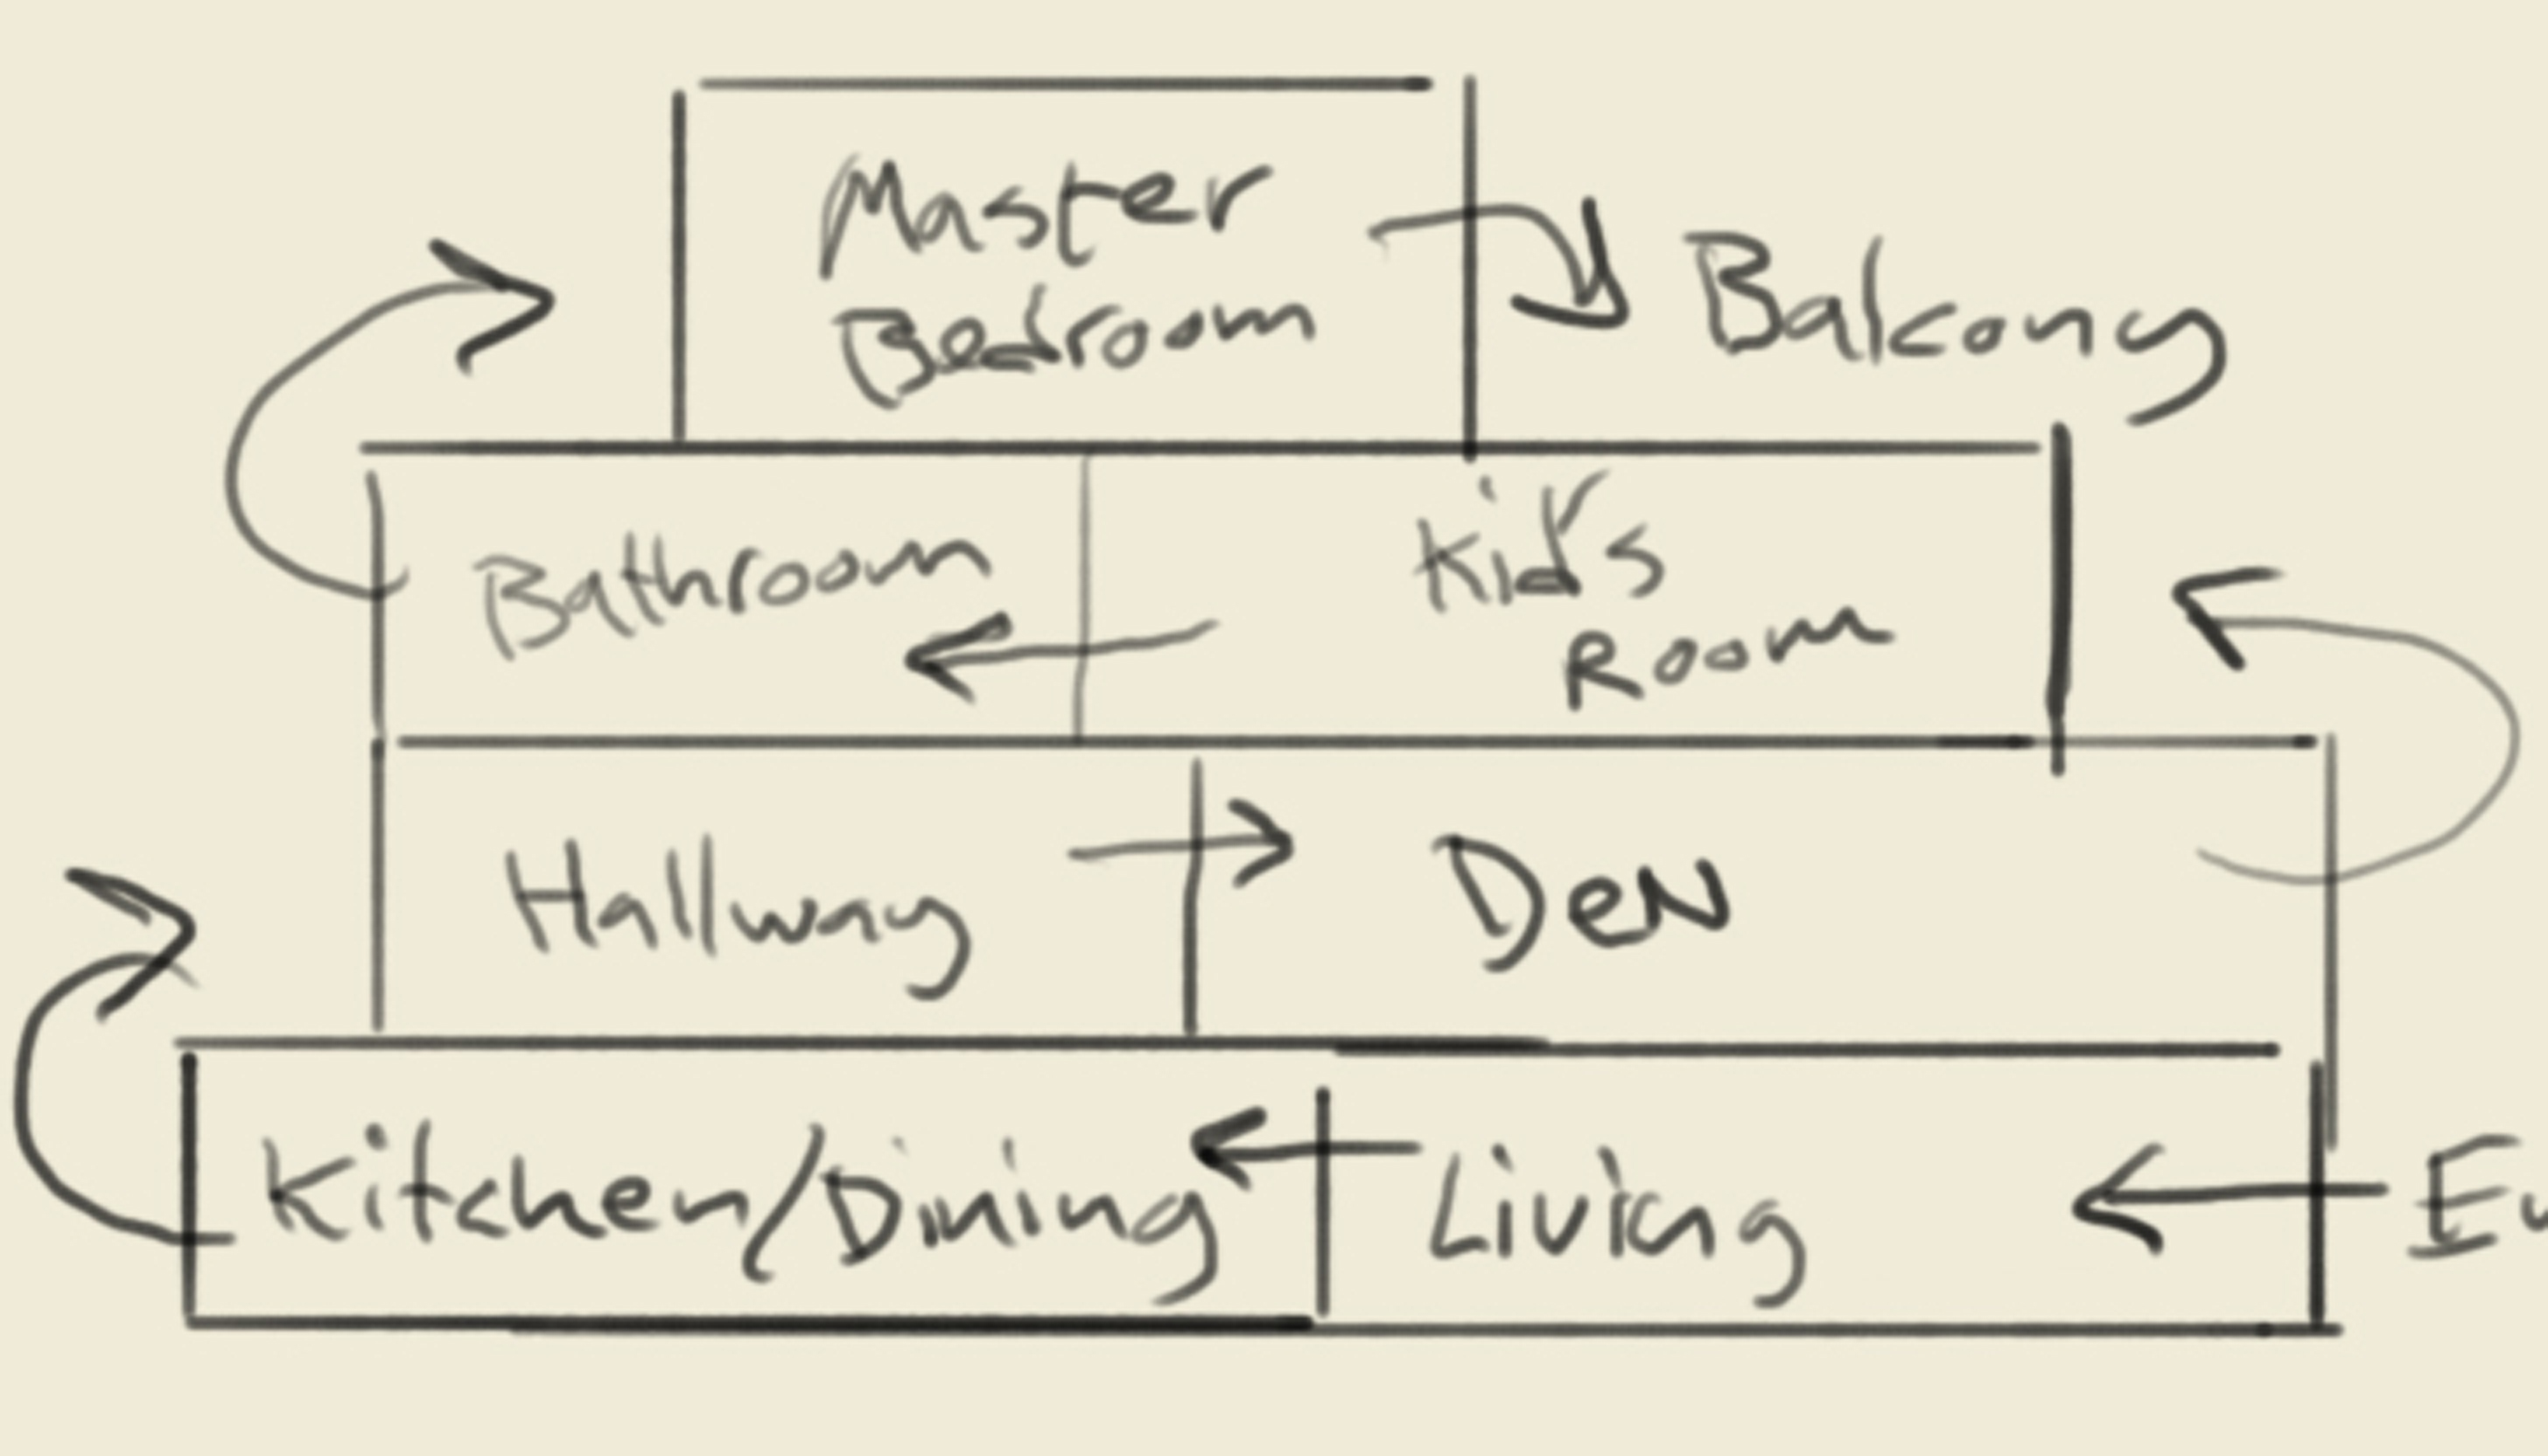 Master
Bedroom
Balcony
Bathroom
Kid's
Room
Hallway
Den
Kitchen/Dining
Living